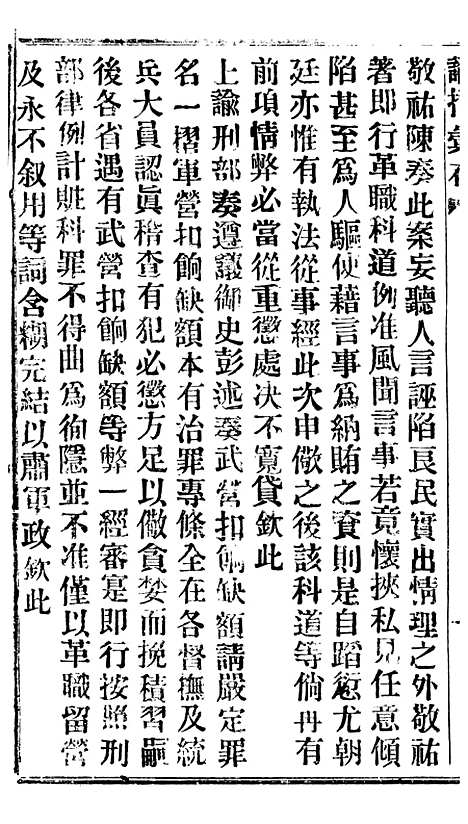 諭摺彙存
敬祐陳奏此案妄聽人言誣陷良民實出情理之外敬祐
著即行革職科道例准風聞言事若竟懷挾私見任意傾
陷甚至為人驅使藉言事為納賄之資則是自蹈愆尤朝
廷亦惟有執法從事經此次申儆之後該科道等倘再有
前項情弊必當從重懲處決不寬貸欽此
上諭刑部奏遵議御史彭述奏武營扣餉缺額請嚴定罪
名一摺軍營扣餉缺額本有治罪專條全在各督撫及統
兵大員認眞稽查有犯必懲方足以儆貪婪而挽積習嗣
後各省遇有武營扣餉缺額等弊一經審寔即行按照刑
部律例計贓科罪不得曲為徇隱並不准僅以革職留營
及永不叙用等詞含糊完結以肅軍政欽此